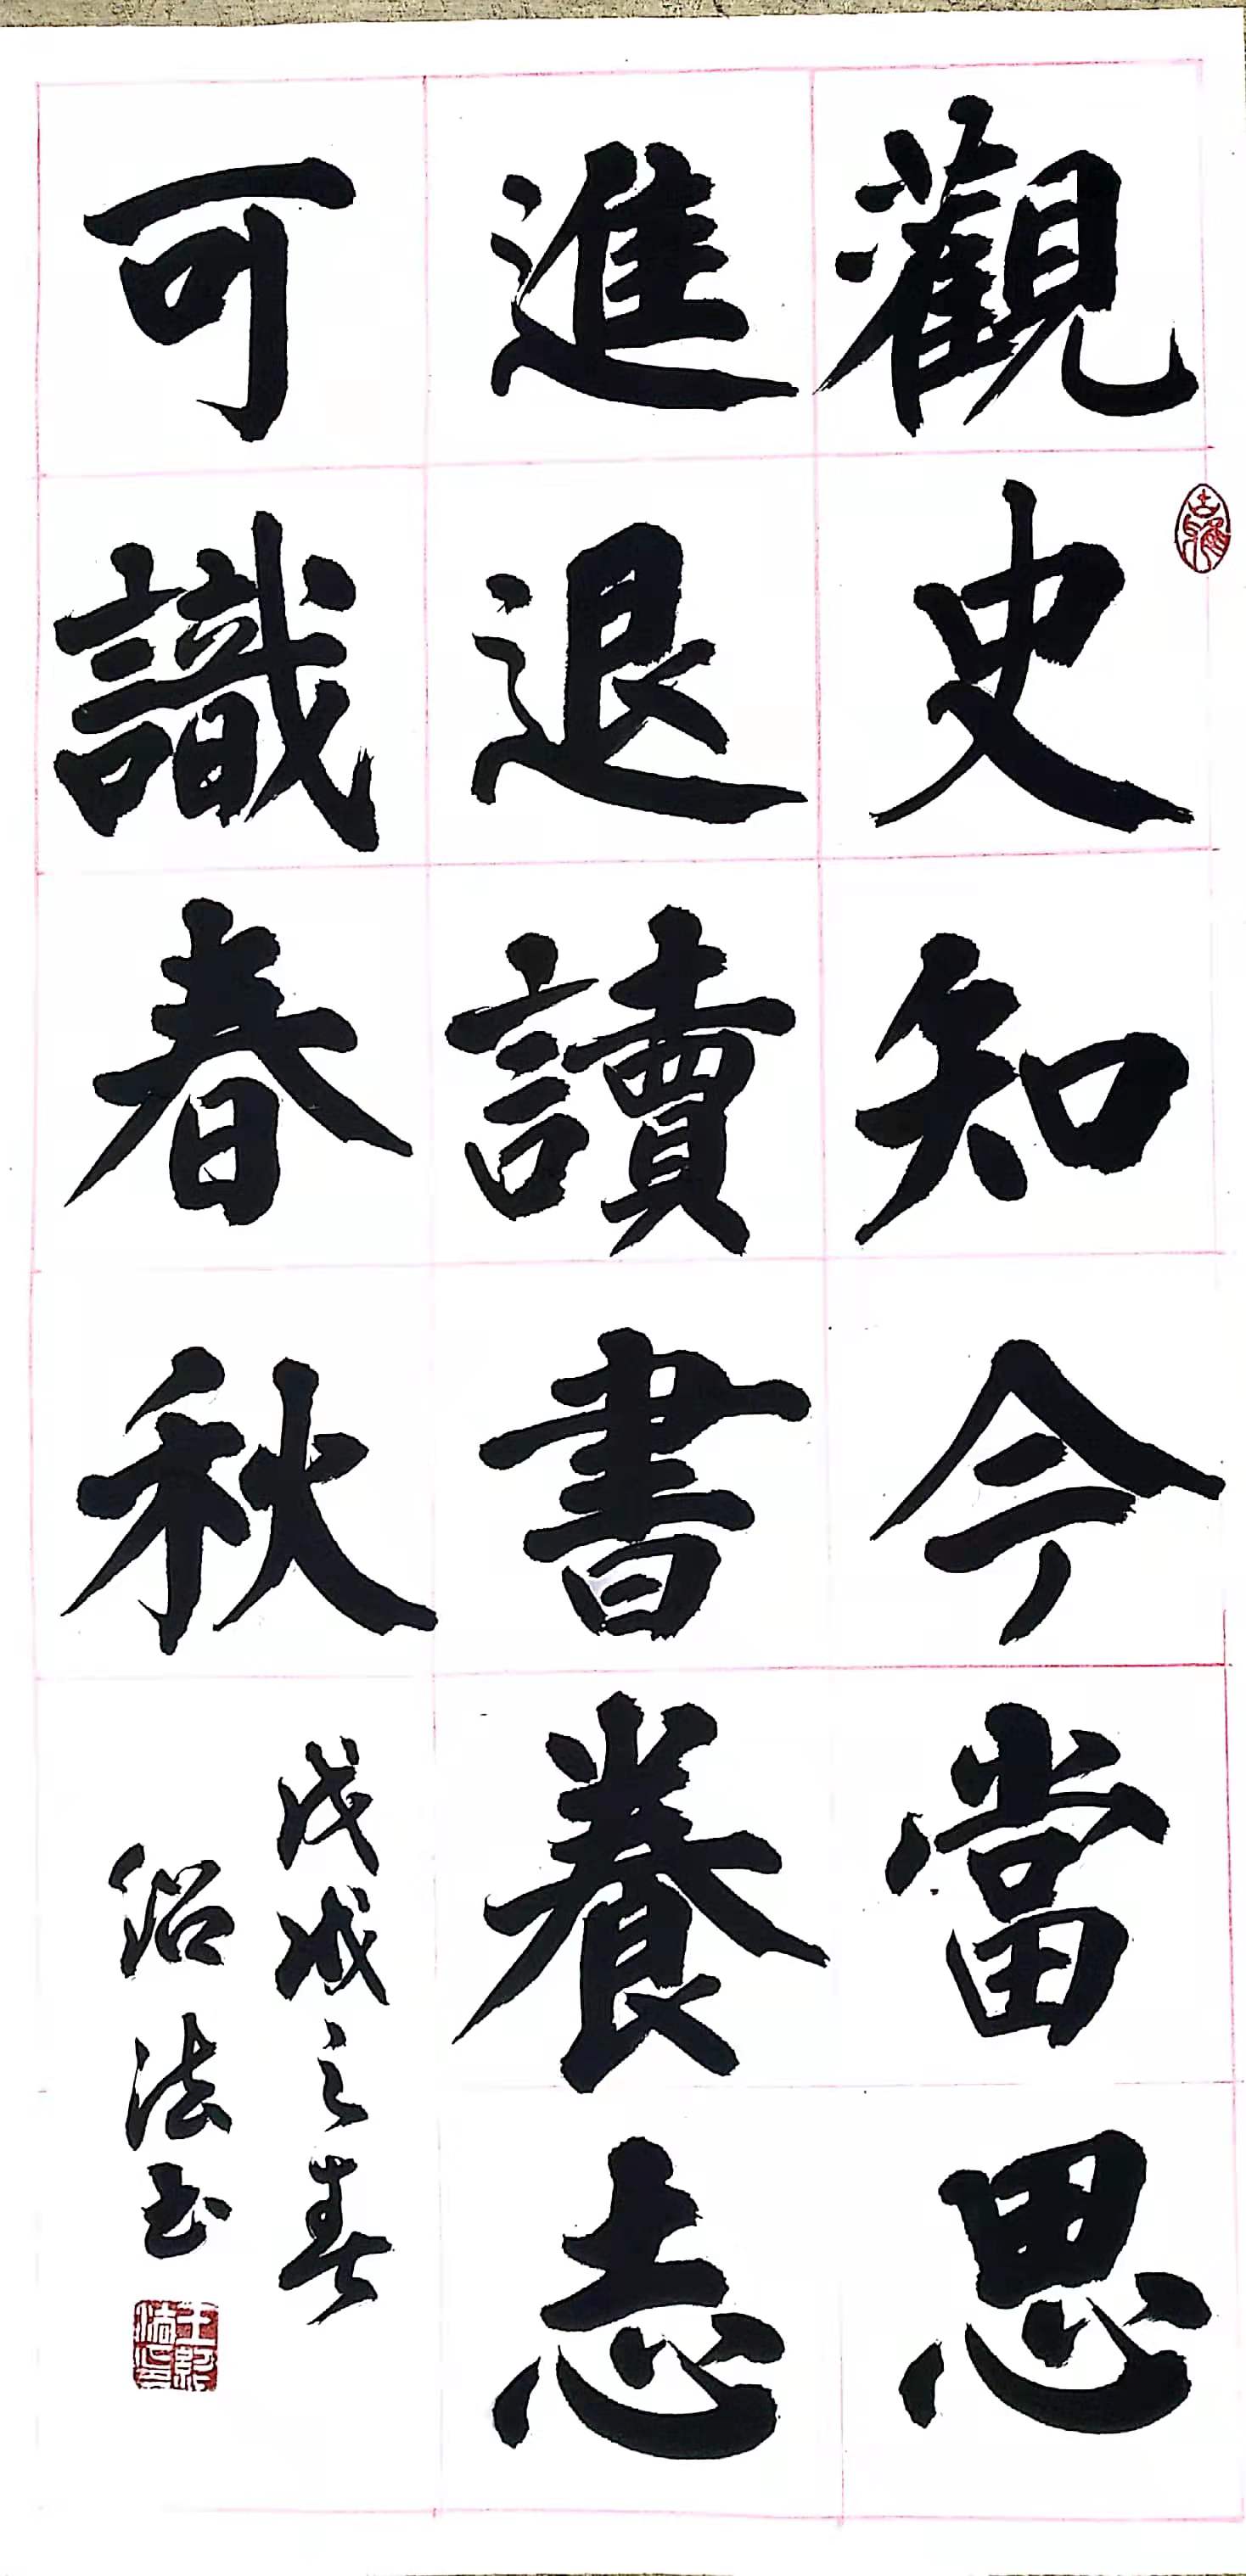 觀史知今當思
進退讀書養志
可識春秋
戊戌之春
紹法书
王紹法印